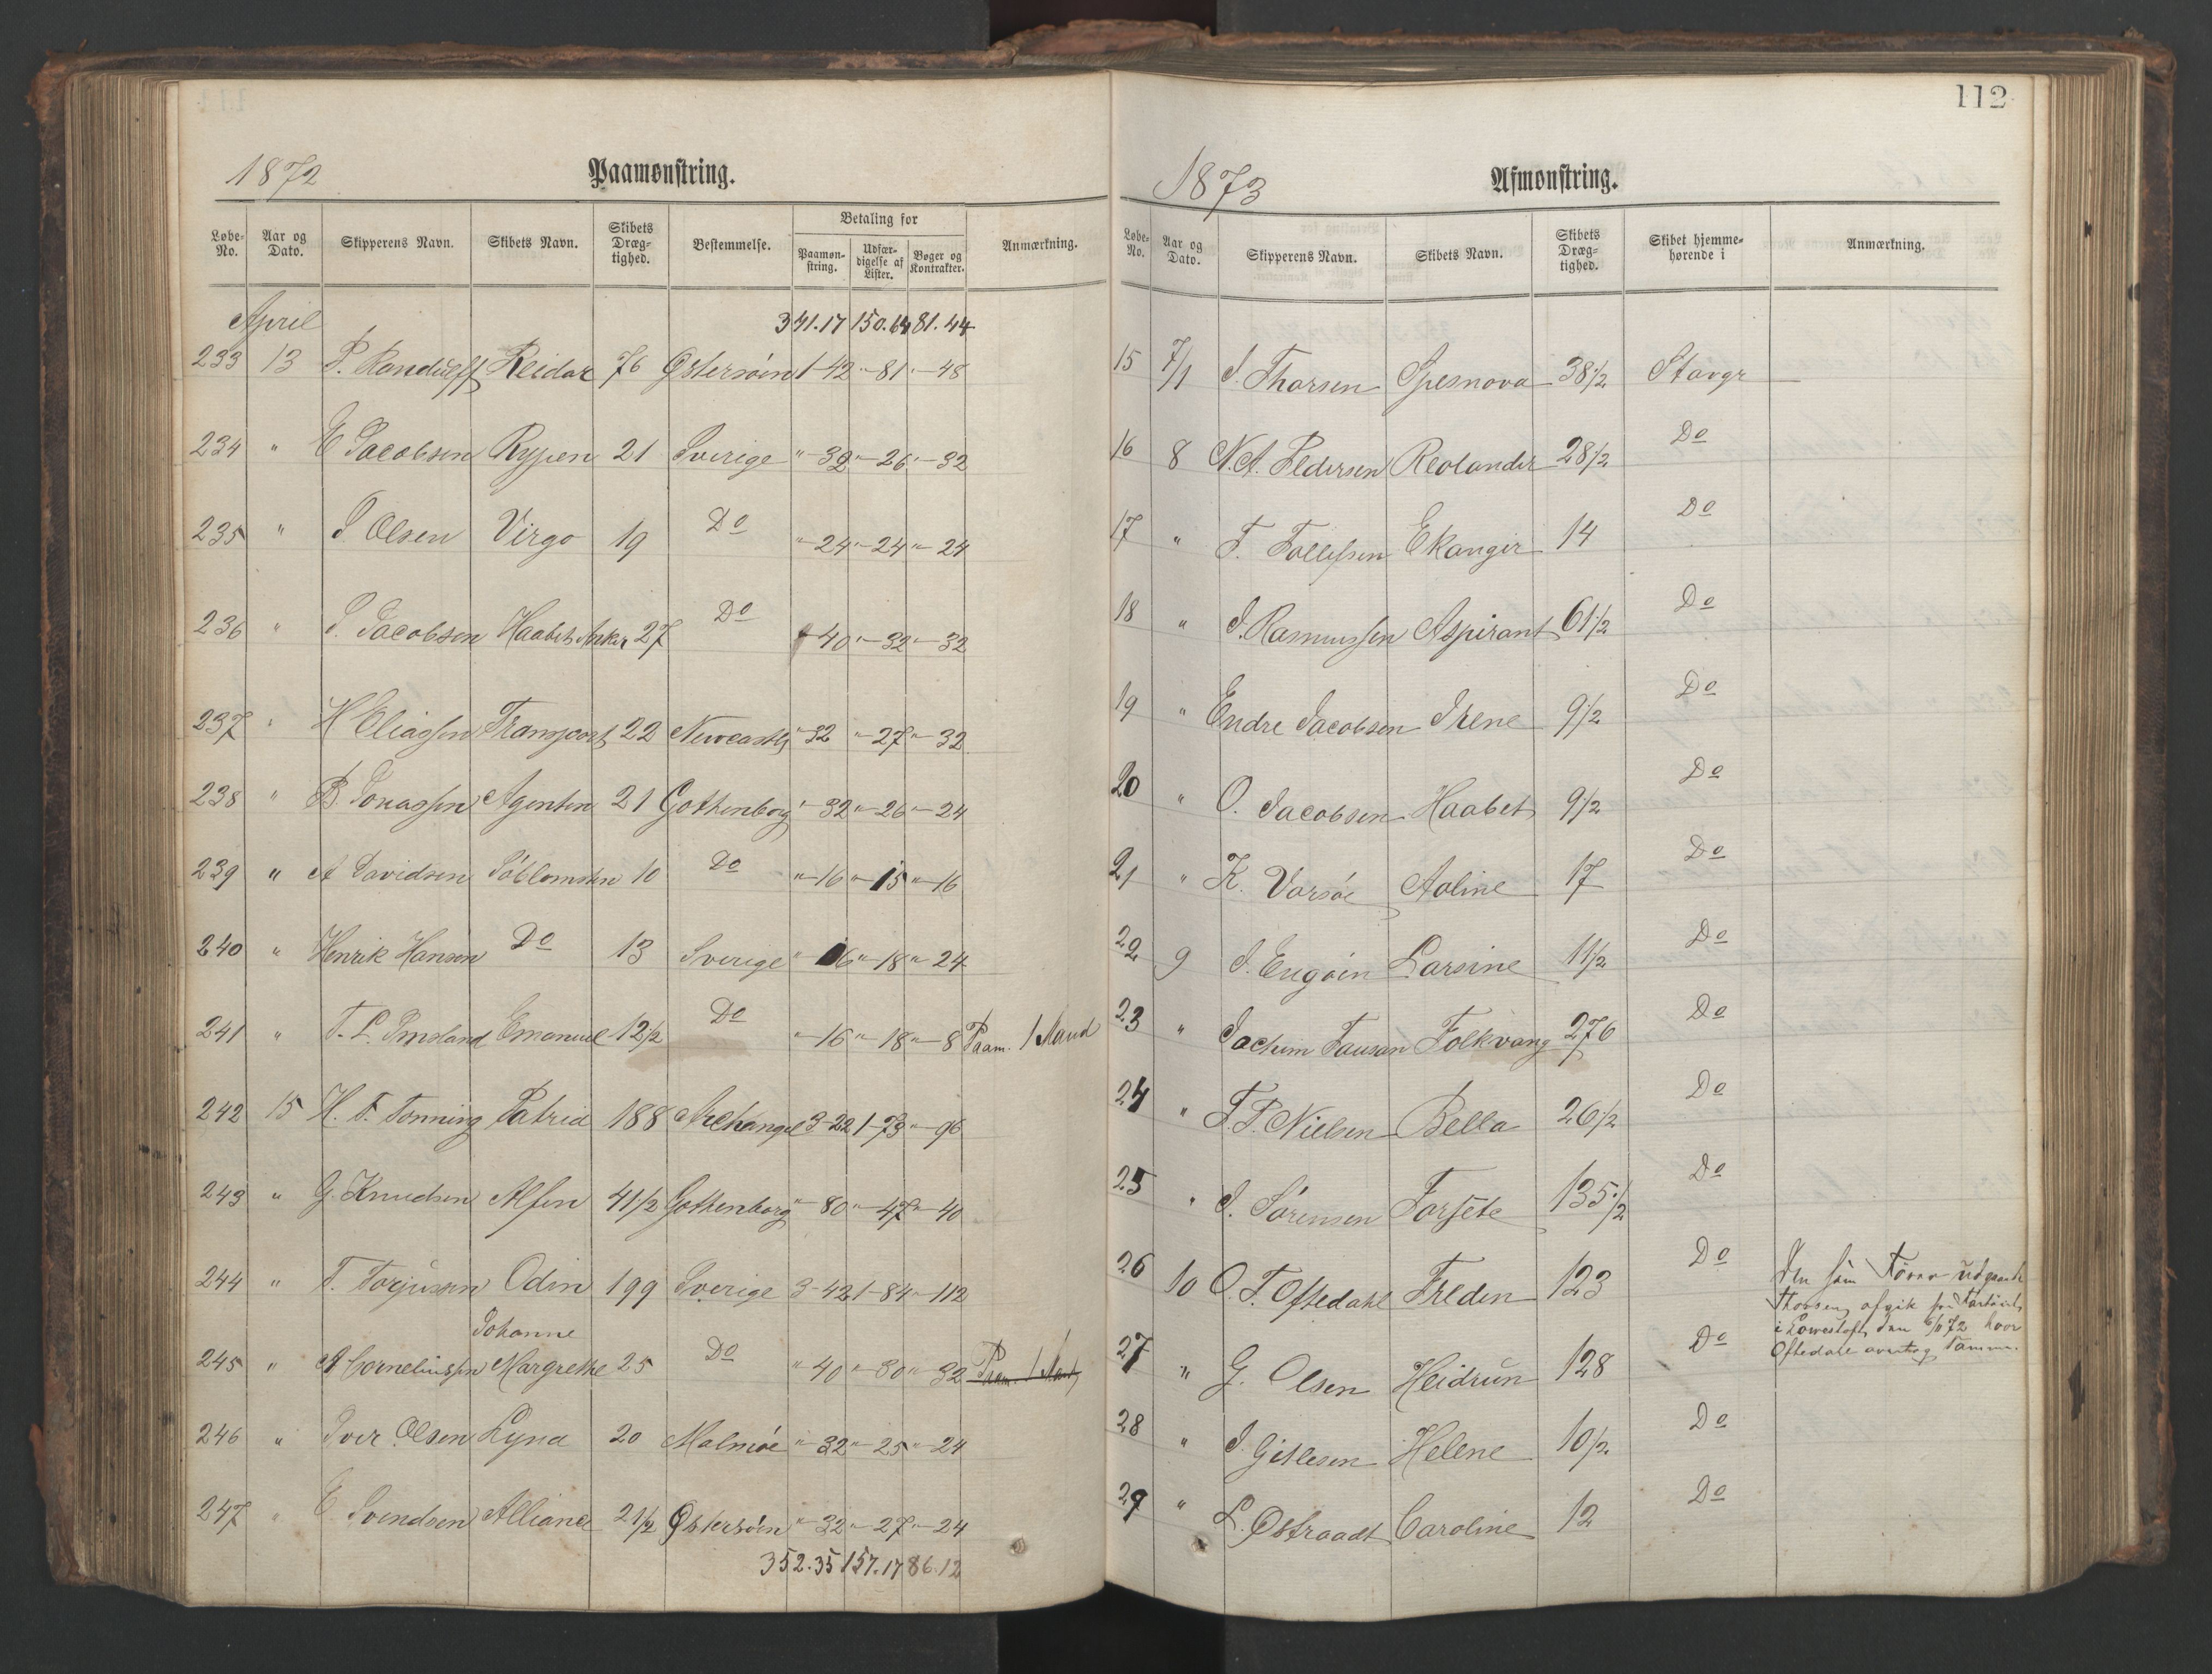 1872 Paamønstring.
Løbe-No. Aar og Dato. Skipperens Navn. Skibets Navn. Skibets Dræg-tighed. Bestemmelse. Betaling for Paamøn-string. Udfær-digelse af Lister. Bøger og Kontrakter. Anmærkning.
April 341.17 150.64 81.44
233 13 P. Randulff Reidar 76 Østersöen 1-42 "-81 "-48
234 " E Jacobsen Rypen 21 Sverige "-32 "-26 "-32
235 " S. Olsen Virgo 19 Do "-24 "-24 "-24
236 " S. Jacobsen Haabets Anker 27 Do "-40 "-32 "-32
237 " H Eliassen Transport 22 Newcastle "-32 "-27 "-32
238 " B Jonassen Agenten 21 Gothenborg "-32 "-26 "-24
239 " A Davidsen Söblomsten 10 Do "-16 "-15 "-16
240 " Henrik Hansen Do 13 Sverige "-16 "-18 "-24
241 " T. L. Imsland Emanuel 12½ Do "-16 "-18 "-8 Paam. 1 Mand
242 15 H. T. Tonning Patria 188 Archangel 3-22 1-73 "-96
243 " G. Knudsen Alfen 41½ Gothenborg "-80 "-47 "-40
244 " T. Torjussen Odin 199 Sverige 3-42 1-84 "-112
Johanne
245 " A Corneliussen Margrethe 25 Do "-40 "-30 "-32 Paam. 1 Mand
246 " Iver Olsen Lyna 20 Malmöe "-32 "-25 "-24
247 " E Svendsen Alliance 21½ Østersöen "-32 "-27 "-24
352.35 157.17 86.12
112
1873 Afmønstring.
Løbe-No. Aar og Dato. Skipperens Navn. Skibets Navn. Skibets Dræg-tighed. Skibet hjemme-hørende i Anmærkning.
15 7/1 J. Thorsen Spesnova 38½ Stavgr
16 8 N. A. Pedersen Reolander 28½ Do
17 " T. Tollefsen Ekangir 14 Do
18 " J. Rasmussen Aspirant 61½ Do
19 " Endre Jacobsen Irene 9½ Do
20 " O. Jacobsen Haabet 9½ Do
21 " K. Vorsöe Aoline 17 Do
22 9 J. Engöin Larsine 11½ Do
23 " Jochim Tausan Folkvang 276 Do
24 " T. P. Nielsen Bella 26½ Do
25 " J. Sörensen Forsete 135½ Do
26 10 O. T. Oftedahl Freden 123 Do Den som Förer udgaaede
Thorsen afgik fra Fartöiet
i Lowestoft den 6/11 72 hvor
Oftedahl overtog samme.
27 " G. Olsen Heidrun 128 Do
28 " J. Gitlesen Helene 10½ Do
29 " L. Ostraadt Caroline 12 Do